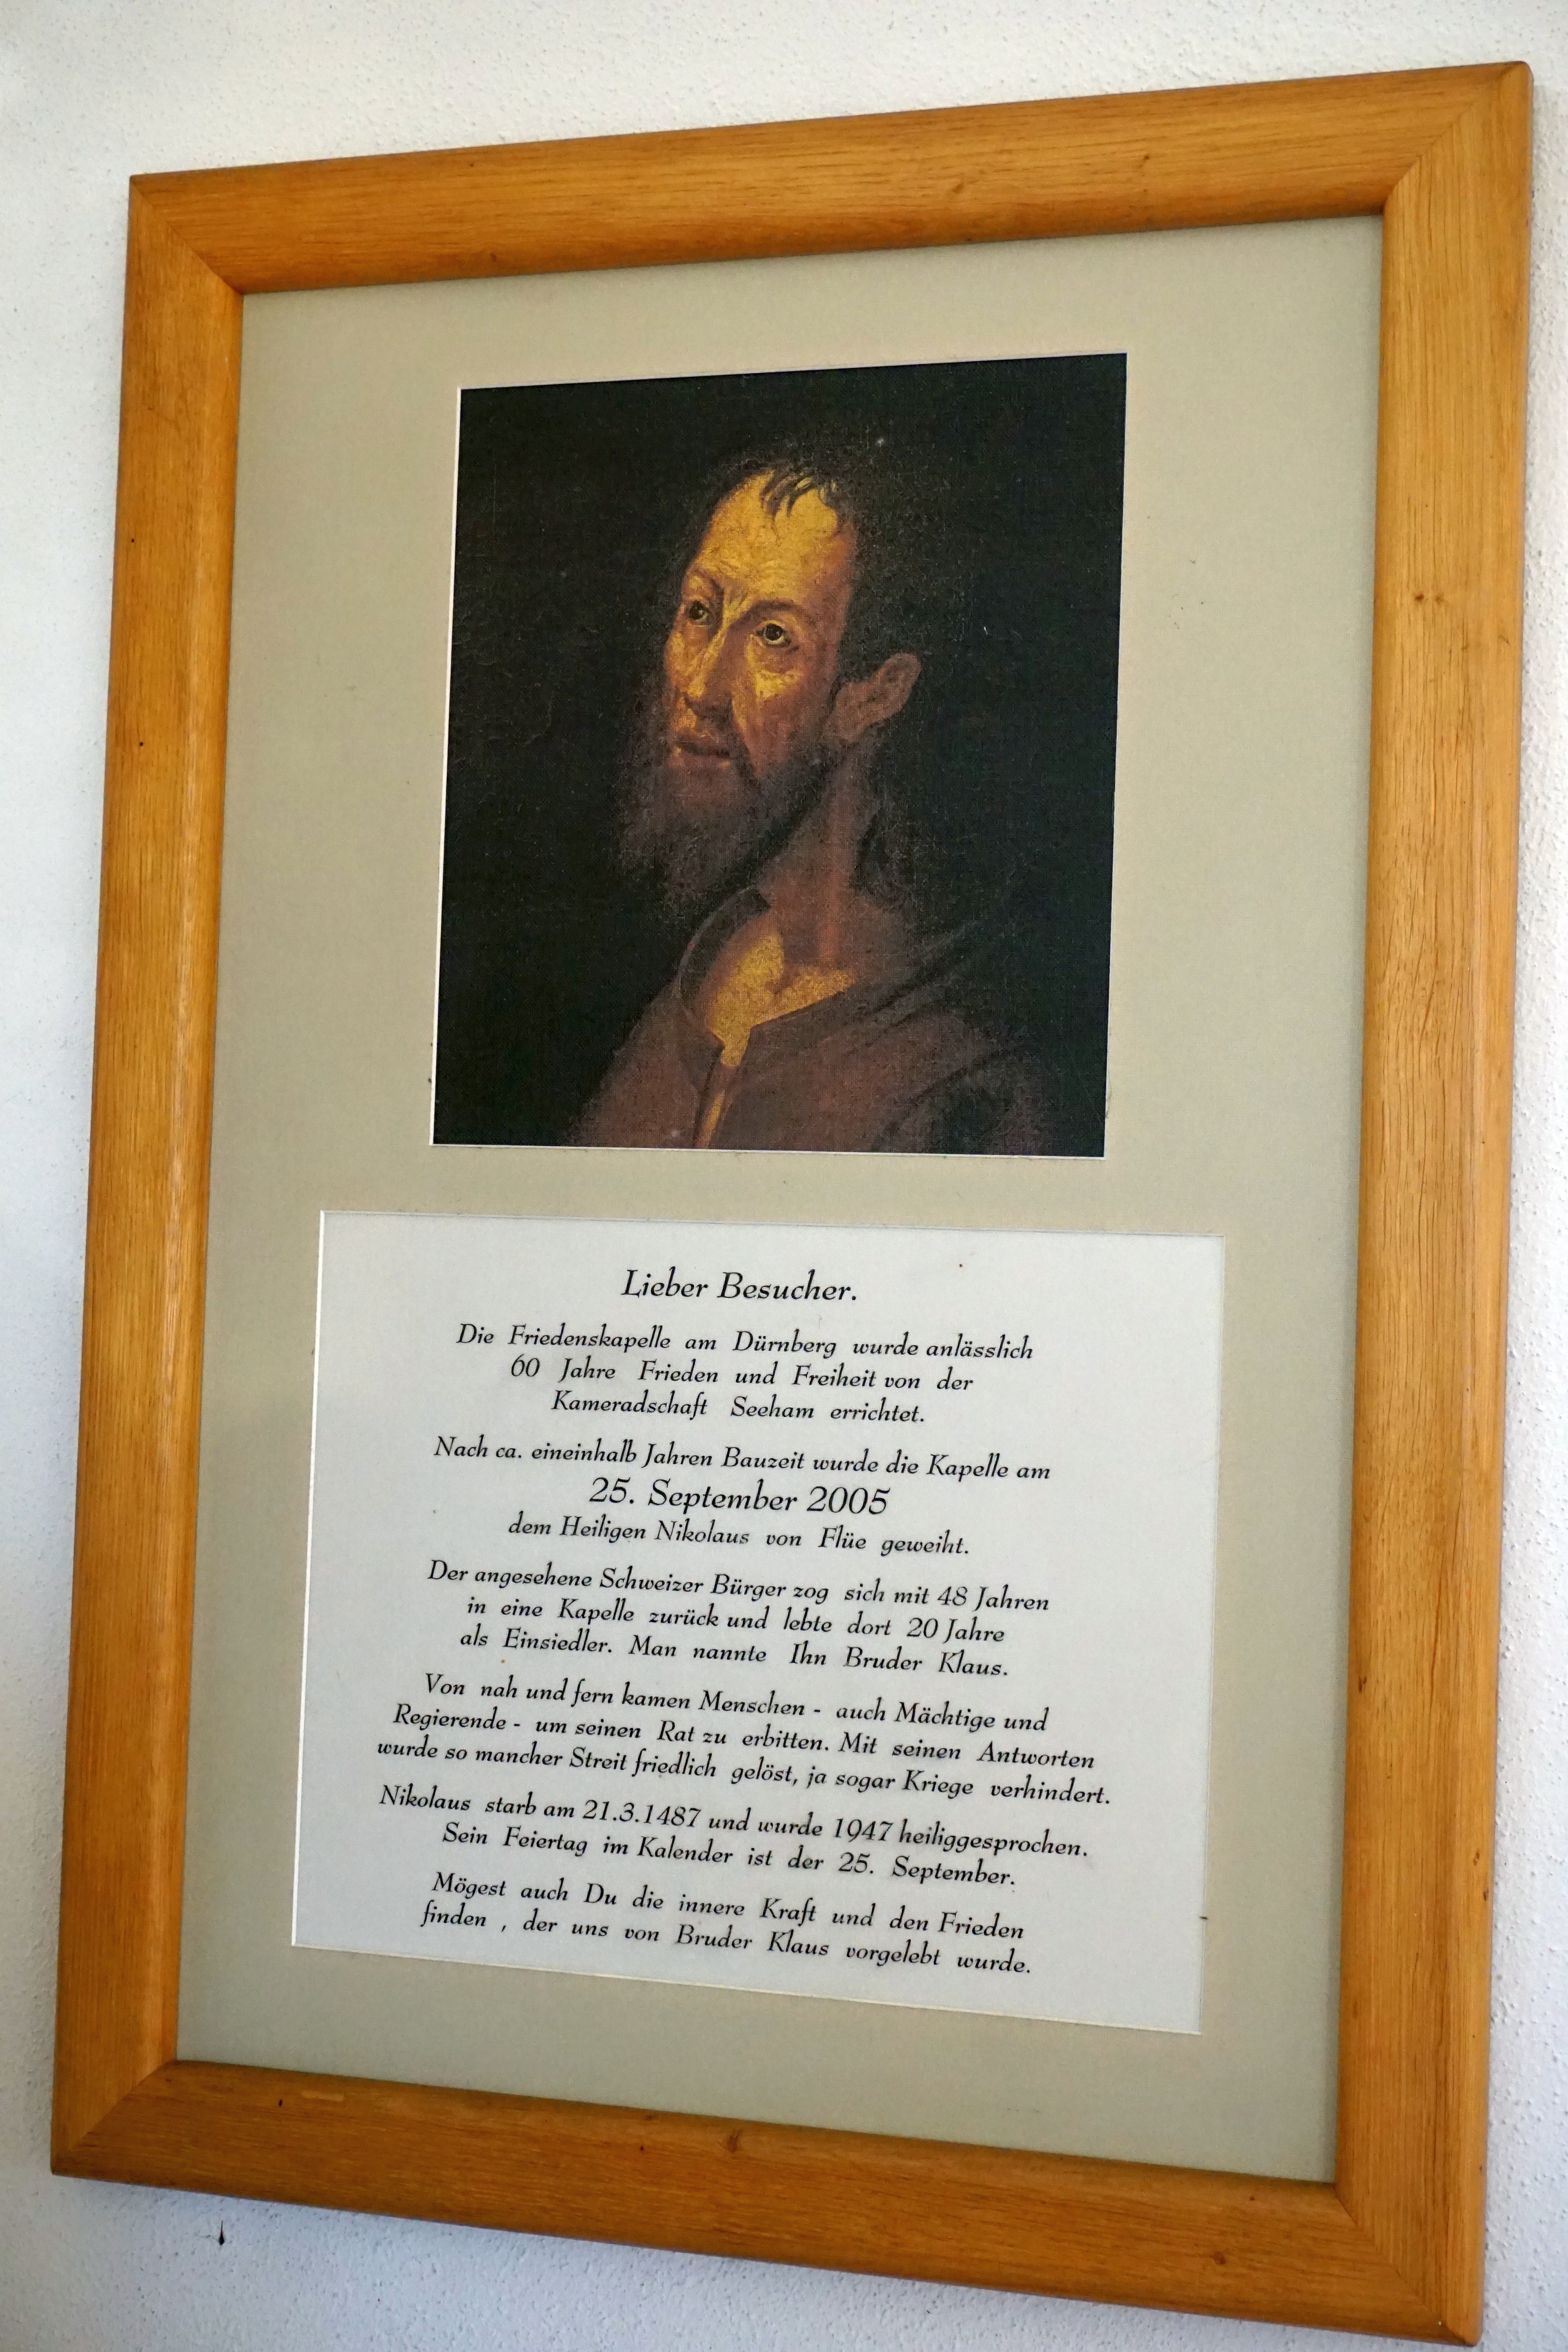 Lieber Besucher.
Die Friedenskapelle am Dürnberg wurde anlässlich
60 Jahre Frieden und Freiheit von der
Kameradschaft Seeham errichtet.
Nach ca. eineinhalb Jahren Bauzeit wurde die Kapelle am
25. September 2005
dem Heiligen Nikolaus von Flüe geweiht.
Der angesehene Schweizer Bürger zog sich mit 48 Jahren
in eine Kapelle zurück und lebte dort 20 Jahre
als Einsiedler. Man nannte Ihn Bruder Klaus.
Von nah und fern kamen Menschen - auch Mächtige und
Regierende - um seinen Rat zu erbitten. Mit seinen Antworten
wurde so mancher Streit friedlich gelöst, ja sogar Kriege verhindert.
Nikolaus starb am 21.3.1487 und wurde 1947 heiliggesprochen.
Sein Feiertag im Kalender ist der 25. September.
Mögest auch Du die innere Kraft und den Frieden
finden , der uns von Bruder Klaus vorgelebt wurde.